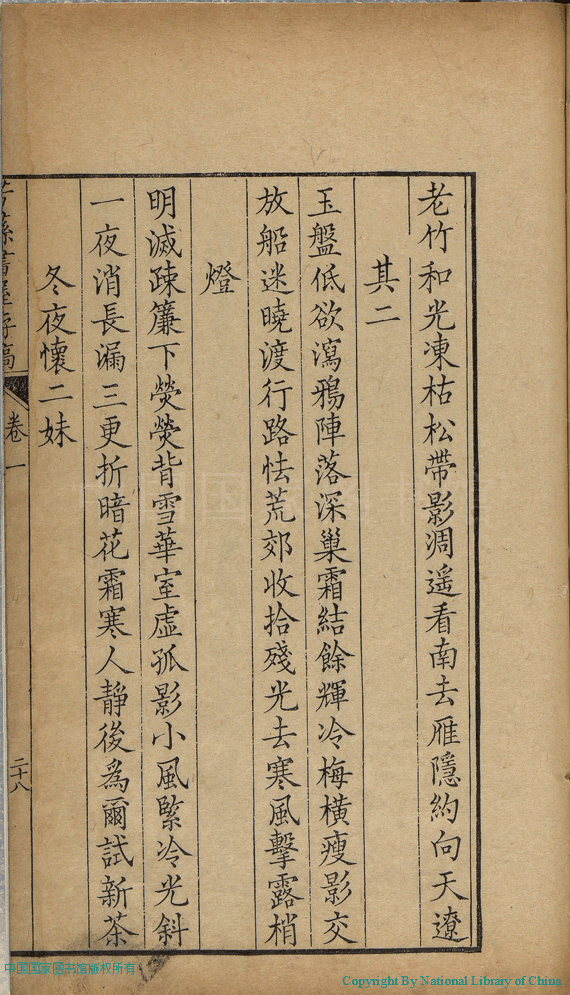 老竹和光凍枯松帶影凋遥看南去雁隱約向天遼
其二
玉盤低欲瀉鴉陣落深巢霜結餘輝冷梅橫瘦影交
放船迷曉渡行路怯荒郊收拾殘光去寒風擊露梢
燈
明滅疎簾下熒熒背雪華室虛孤影小風緊冷光斜
一夜消長漏三更折暗花霜寒人靜後爲爾試新茶
冬夜懷二妹
書屋存稿
卷一
二十八
中国国家图书馆版权所有
Copyright By National Library of China